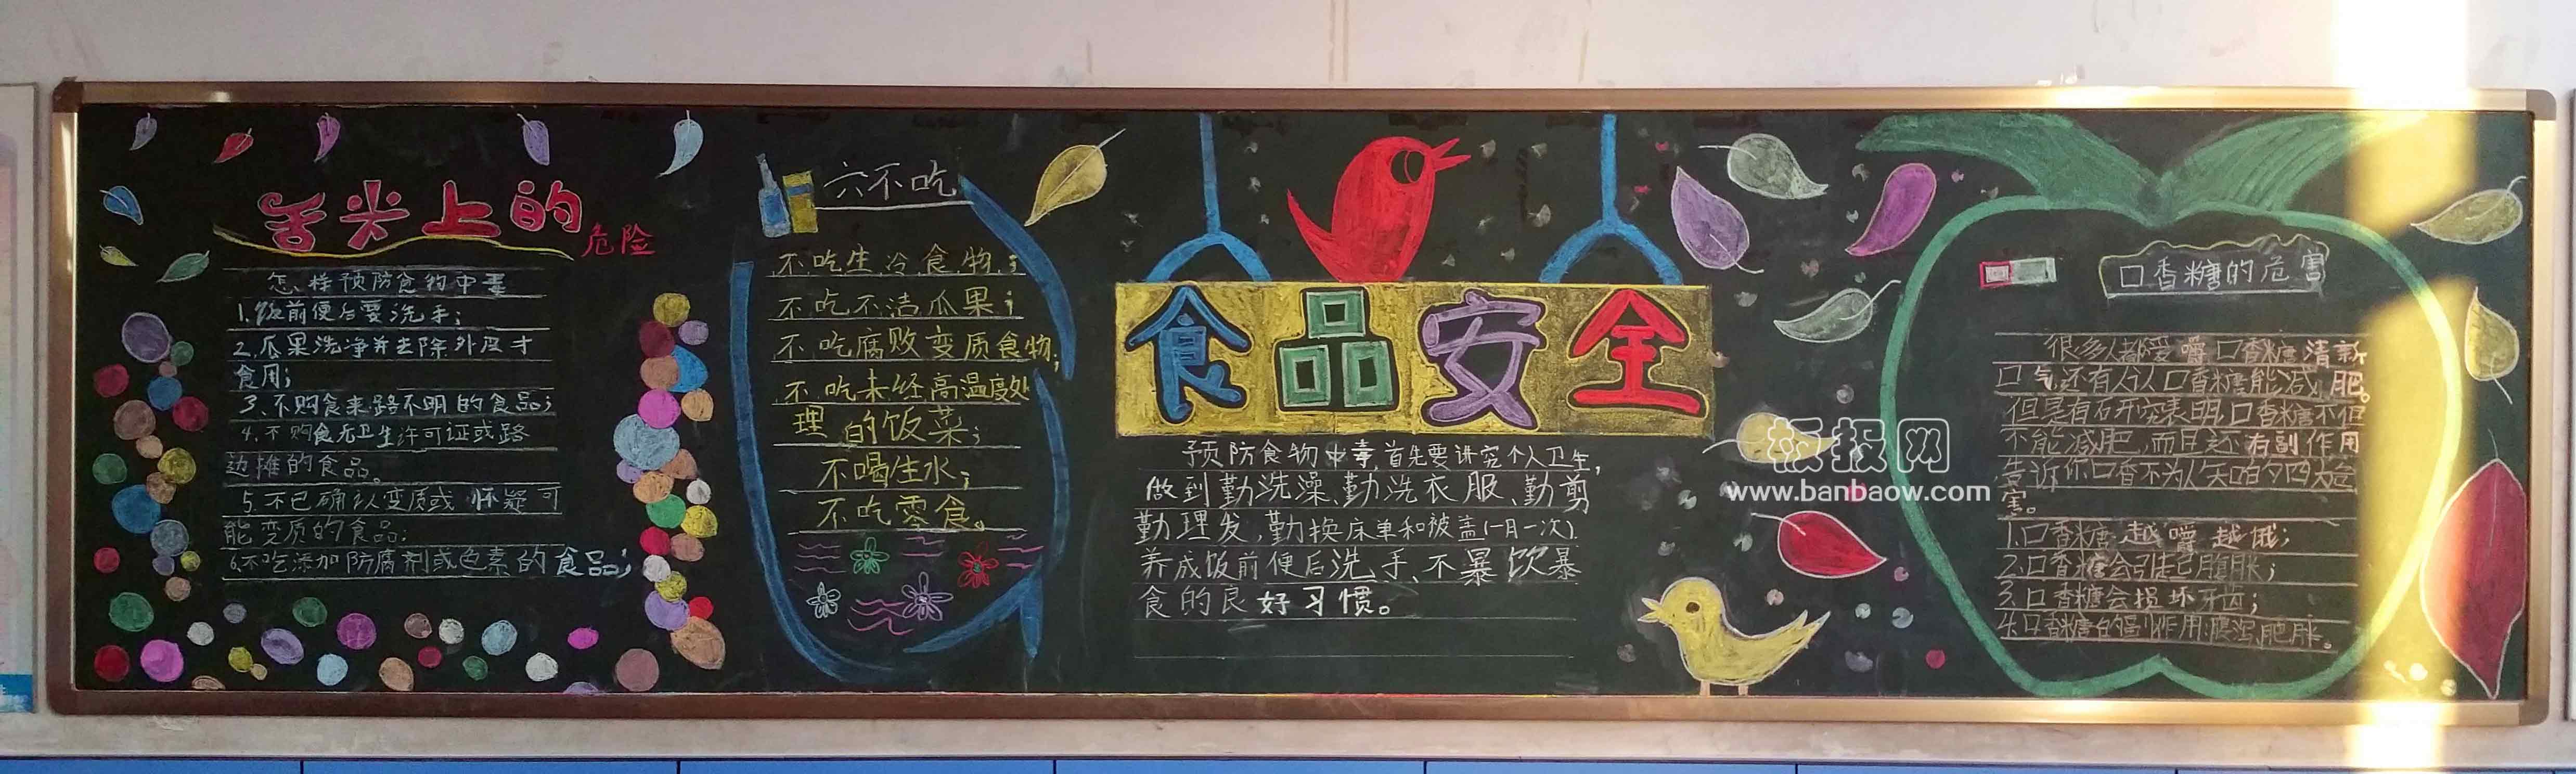 舌尖上的
危险
怎样预防食物中毒
1.饭前便后要洗手;
2.瓜果洗净并去除外皮才
食用;
3、不购食来路不明的食品;
4.不购食无卫生许可证或路
边摊的食品。
5.不已确认变质或怀疑可
能变质的食品;
6.不吃添加防腐剂或色素的食品;
六不吃
不吃生冷食物;
不吃不洁瓜果;
不吃腐败变质食物;
不吃未经高温度处
理的饭菜;
不喝生水;
不吃零食。
食品安全
预防食物中毒,首先要讲究个人卫生,
做到勤洗澡、勤洗衣服、勤剪
勤理发,勤换床单和被盖(一月一次).
养成饭前便后洗手、不暴饮暴
食的良好习惯。
口香糖的危害
很多人都爱嚼口香糖清新
口气,还有人认口香糖能减肥。
但是有研究表明,口香糖不但
不能减肥,而且还有副作用
告诉你口香不为人知的四大危
害。
1.口香糖越嚼越饿;
2.口香糖会引起腹胀;
3.口香糖会损坏牙齿;
4.口香糖的副作用:腹泻,肥胀。
板报网
www.banbaow.com